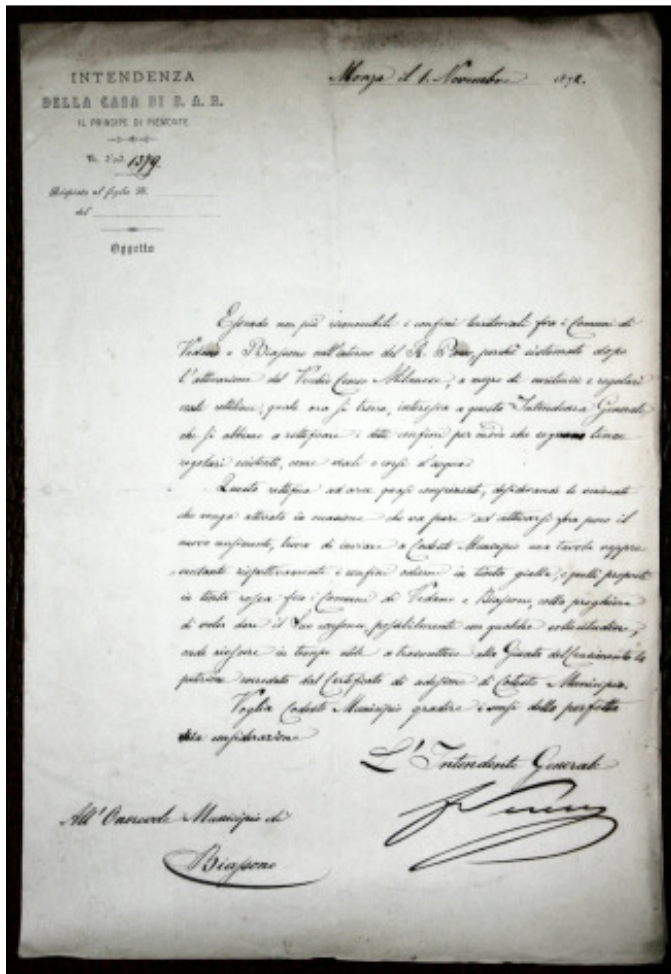 INTENDENZA
DELLA CASA DI S. A. R.
IL PRINCIPE DI PIEMONTE
N. d'ord. 1379.
Risposta al foglio N.
del
Oggetto
Monza il 1. Novembre 1872.
Essendo non più riconoscibili i confini territoriali fra i Comuni di
Vedano e Biassono nell'interno del R. Parco, perchè sistemato dopo
l'attivazione del Vecchio Censo Milanese, a mezzo di costruzioni e regolari
viali rettilinei, quale ora si trova, interessa a questa Intendenza Generale
che si abbiano a rettificare i detti confini per modo che seguano linee
regolari esistenti, come viali e corsi d'acqua.
Questa rettifica ad aver quasi compimento, desiderando lo scrivente
che venga attivata in occasione che va pure ad attivarsi fra poco il
nuovo censimento, trova di inviare a Codesto Municipio una tavola rappre-
sentante rispettivamente i confini odierni in tinta gialla, e quelli proposti
in tinta rossa fra i Comuni di Vedano e Biassono, colla preghiera
di voler dare il Suo consenso, possibilmente con qualche sollecitudine,
onde riescire in tempo utile a trasmettere alla Giunta del Censimento la
petizione corredata dal Certificato di adesione di Codesto Municipio.
Voglia Codesto Municipio gradire i sensi della perfetta
mia considerazione
L'Intendente Generale
All'Onorevole Municipio di
Biassono